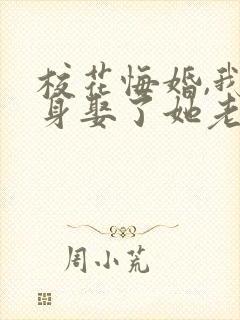 校花悔婚,我
身娶了她老
周小荒